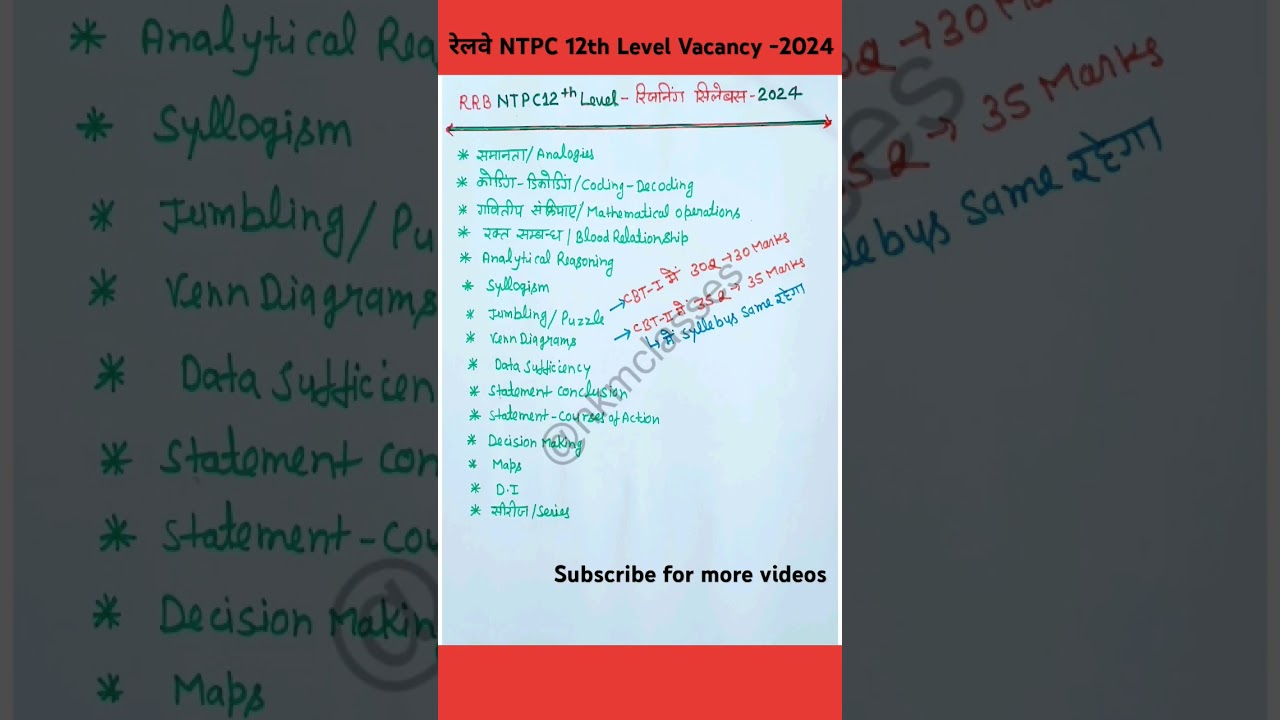 रेलवे NTPC 12th Level Vacancy -2024
RRB NTPC 12th Level - रिजनिंग सिलेबस - 2024
* समानता / Analogies
* कोडिंग - डिकोडिंग / Coding - Decoding
* गवितीप संक्रिपाए / Mathematical operations
* रक्त सम्बन्ध / Blood Relationship
* Analytical Reasoning
* Syllogism
* Jumbling / Puzzle
* Venn Diagrams
* Data Sufficiency
* Statement conclusion
* Statement - Courses of Action
* Decision Making
* Maps
* D.I
* सीरीज / Series
→ CBT-I में 30Q → 30 Marks
→ CBT-II में 35Q → 35 Marks
↳ में Syllebus Same रहेगा
@nkmclasses
Subscribe for more videos